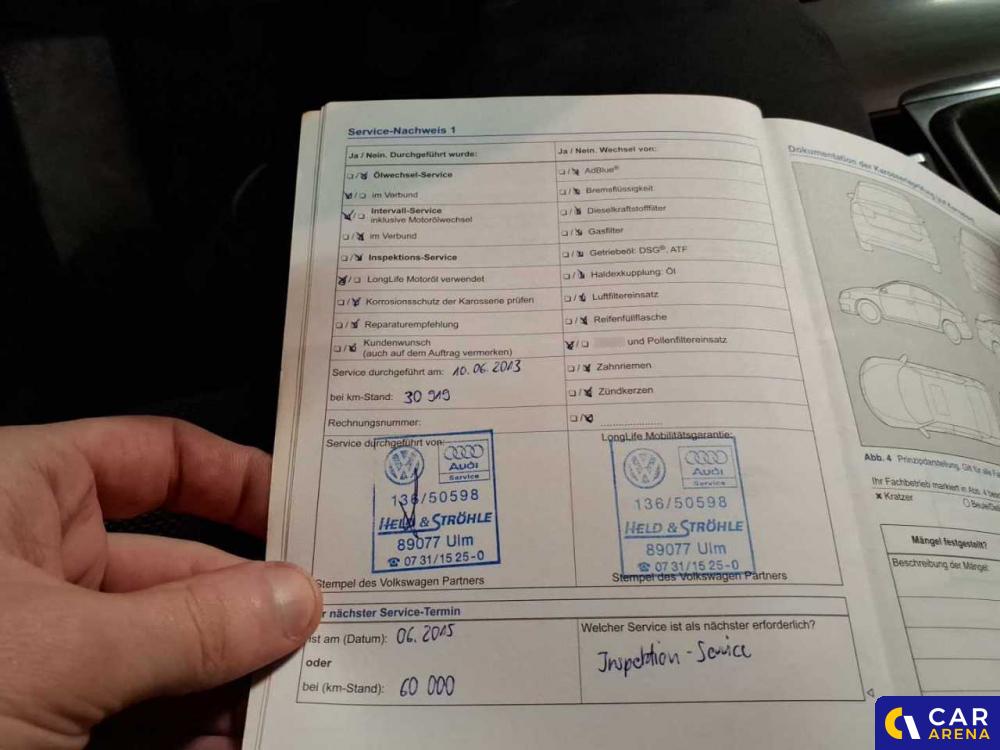 Service-Nachweis 1
Ja / Nein. Durchgeführt wurde:
Ölwechsel-Service
im Verbund
Intervall-Service
inklusive Motorölwechsel
im Verbund
Inspektions-Service
LongLife Motoröl verwendet
Korrosionsschutz der Karosserie prüfen
Reparaturempfehlung
Kundenwunsch
(auch auf dem Auftrag vermerken)
Service durchgeführt am: 10.06.2013
bei km-Stand: 30 919
Rechnungsnummer:
Service durchgeführt von:
Audi
Service
136/50598
HELD & STRÖHLE
89077 Ulm
☎ 07 31/15 25-0
Stempel des Volkswagen Partners
Ja / Nein. Wechsel von:
AdBlue®
Bremsflüssigkeit
Dieselkraftstofffilter
Gasfilter
Getriebeöl: DSG®, ATF
Haldexkupplung: Öl
Luftfiltereinsatz
Reifenfüllflasche
und Pollenfiltereinsatz
Zahnriemen
Zündkerzen
LongLife Mobilitätsgarantie:
Audi
Service
136/50598
HELD & STRÖHLE
89077 Ulm
☎ 07 31/15 25-0
Stempel des Volkswagen Partners
r nächster Service-Termin
ist am (Datum): 06.2015
oder
bei (km-Stand): 60 000
Welcher Service ist als nächster erforderlich?
Inspektion-Service
Dokumentation der Karosserieprüfung
Abb. 4 Prinzipdarstellung. Gilt für alle
Ihr Fachbetrieb markiert in Abb. 4
× Kratzer
Mängel festgestellt?
Beschreibung der Mängel:
CAR
ARENA